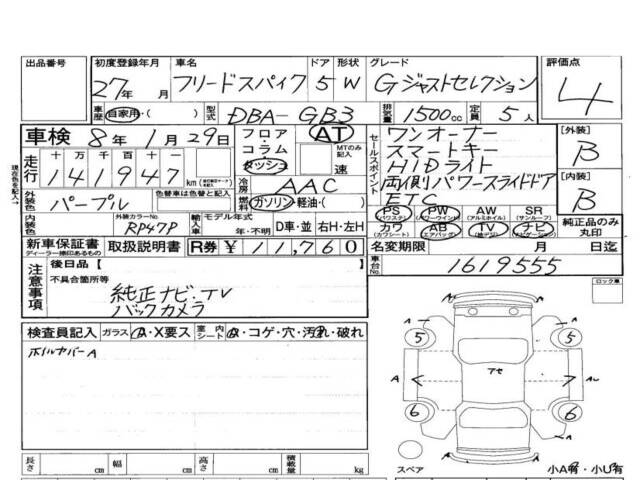 出品番号
初度登録年月 27年 月
車名 フリードスパイク
ドア 5 形状 W
グレード Gジャストセレクション
評価点 4
車歴 自家用・( )
型式 DBA-GB3
排気量 1500cc
定員 5人
車検 8年1月29日
フロア コラム ダッシュ
AT
MTのみ記入 速
セールスポイント
ワンオーナー
スマートキー
HIDライト
両側パワースライドドア
ETC
[外装] B
[内装] B
現在色を記入→
走行 十万千百十 141947 km
外装色 パープル
色替車は色替と記入
冷房 AAC
燃料 ガソリン・軽油・( )
PS (パワステ) PW (パワーウインド) AW (アルミホイル) SR (サンルーフ)
カワ (カワシート) AB (エアバッグ) TV (地デジ) ナビ (ナビゲーション)
純正品のみ丸印
内装色
外装カラーNo. RP47P
輸入車 モデル年式 年・不明 D車・並 右H・左H
新車保証書 ディーラー捺印あるもの
取扱説明書
R券 ¥11,760
名変期限 月 日迄
車台No. 1619555
注意事項
後日品【 】
不具合箇所等
純正ナビ・TV
バックカメラ
ロック車
検査員記入 ガラス A・X要ス 室内シート ・コゲ・穴・汚れ・破れ
ホイルカバーA
A
5
5
A
6
6
スペア
小A有・小U有
長さ cm 幅 cm 高さ cm 積載量 kg